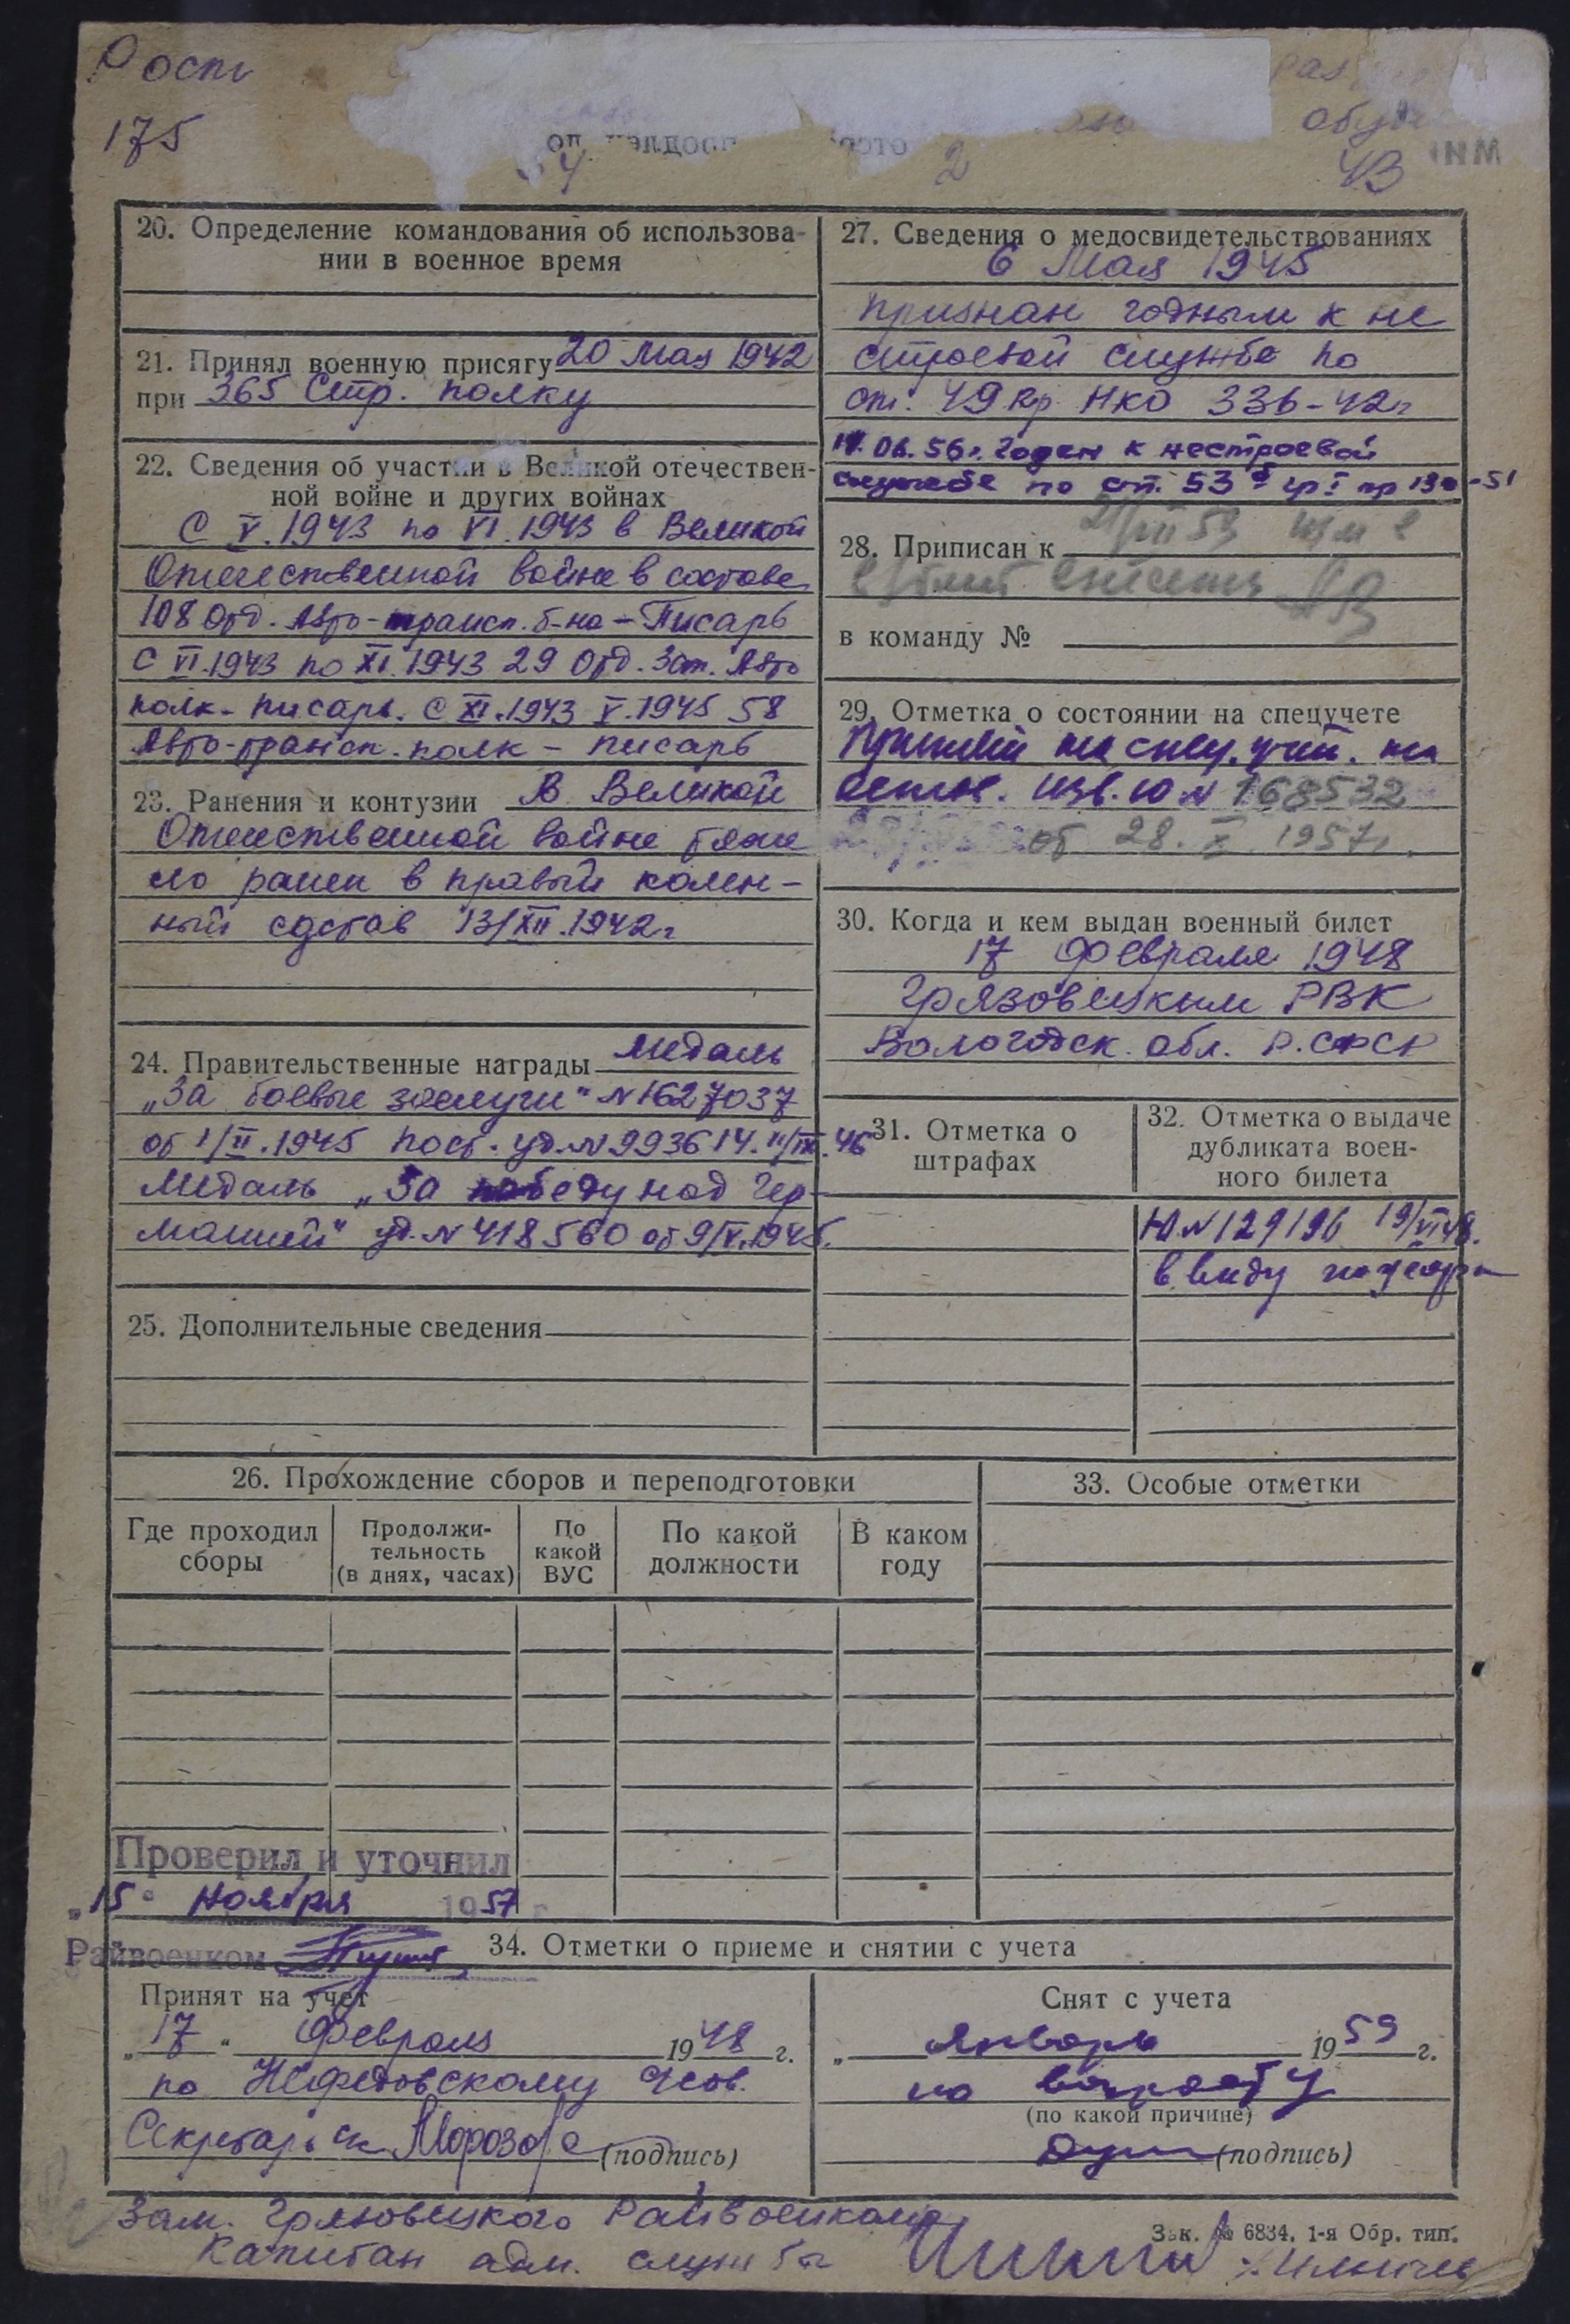 Рост
175
20. Определение командования об использова-
нии в военное время
21. Принял военную присягу 20 Мая 1942
при 365 Стр. полку
22. Сведения об участии в Великой отечествен-
ной войне и других войнах
С V.1943 по VI.1943 в Великой
Отечественной войне в составе
108 Отд. Авто-трансп. б-на - Писарь
С VI.1943 по XI.1943 29 Отд. Зап. Авто
полк - писарь. С XI.1943 V.1945 58
Авто-трансп. полк - писарь
23. Ранения и контузии В Великой
Отечественной войне тяже
ло ранен в правый колен-
ный сустав 13/XII.1942г
24. Правительственные награды Медаль
„За боевые заслуги" N 1627037
от 1/II.1945 пост. уд. N 993614. 11/IX.46
Медаль „За победу над Гер-
манией" уд. N 418560 от 9/V.1945.
25. Дополнительные сведения
27. Сведения о медосвидетельствованиях
6 Мая 1945
признан годным к не
строевой службе по
ст. 49 пр НКО 336-42г
06.56г. Годен к нестроевой
службе по ст. 53 гр I пр -51
28. Приписан к
в команду №
29. Отметка о состоянии на спецучете
Принят на спец. учет. на
основ. изв. Ю N 168532
от 28. X 1957г.
30. Когда и кем выдан военный билет
17 Февраля 1948
Грязовецким РВК
Вологодск. обл. Р.СФСР
31. Отметка о
штрафах
32. Отметка о выдаче
дубликата воен-
ного билета
Ю N 129196 19/VI 48.
в виду пожара
26. Прохождение сборов и переподготовки
Где проходил
сборы
Продолжи-
тельность
(в днях, часах)
По
какой
ВУС
По какой
должности
В каком
году
33. Особые отметки
Проверил и уточнил
„15" Ноября 1957 г
Райвоенком
34. Отметки о приеме и снятии с учета
Принят на учет
„17" Февраля 1948 г.
по Нефедовскому
Секретарь Морозова (подпись)
Снят с учета
„ Январь 1959 г.
по возрасту
(по какой причине)
(подпись)
Зам. Грязовецкого Райвоенкома
Капитан адм. службы
Зак. № 6834. 1-я Обр. тип.